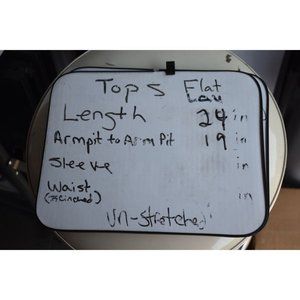 Tops Flat
Lay
Length 24 in
Armpit to Arm Pit 19 in
Sleeve in
Waist in
(if Cinched)
Un-Stretched